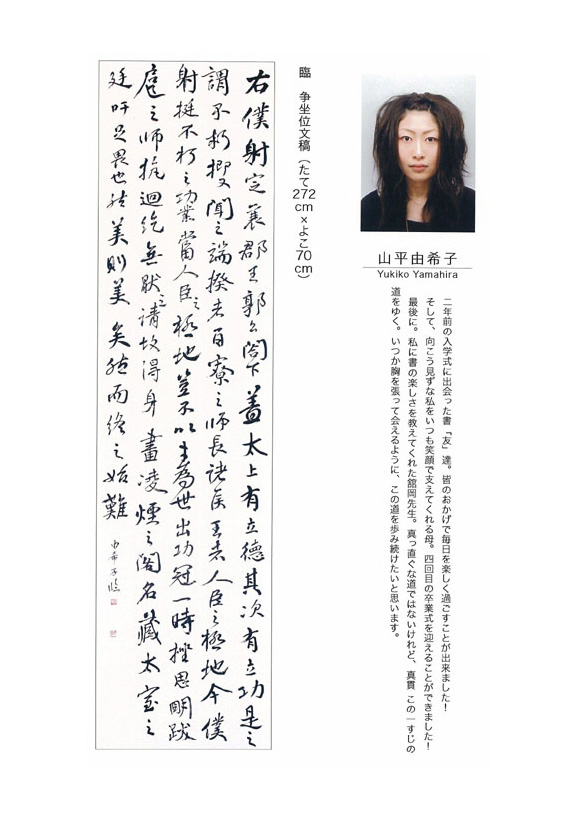 山平由希子
Yukiko Yamahira
二年前の入学式に出会った書「友」達。皆のおかげで毎日を楽しく過ごすことが出来ました!
そして、向こう見ずな私をいつも笑顔で支えてくれる母。四回目の卒業式を迎えることができました!
最後に。私に書の楽しさを教えてくれた舘岡先生。真っ直ぐな道ではないけれど、真貫 この一すじの
道をゆく。いつか胸を張って会えるように、この道を歩み続けたいと思います。
臨 争坐位文稿(たて272cm×よこ70cm)
右僕射定襄郡王郭公閤下蓋太上有立德其次有立功是之
謂不朽抑又聞之端揆者百寮之師長諸侯王者人臣之極地今僕
射挺不朽之功業當人臣之極地豈不以才為世出功冠一時挫思明跋
扈之師抗迴紇無猒之請故得身畫凌煙之閣名藏太室之
廷吁足畏也然美則美矣然而終之始難
由希子臨